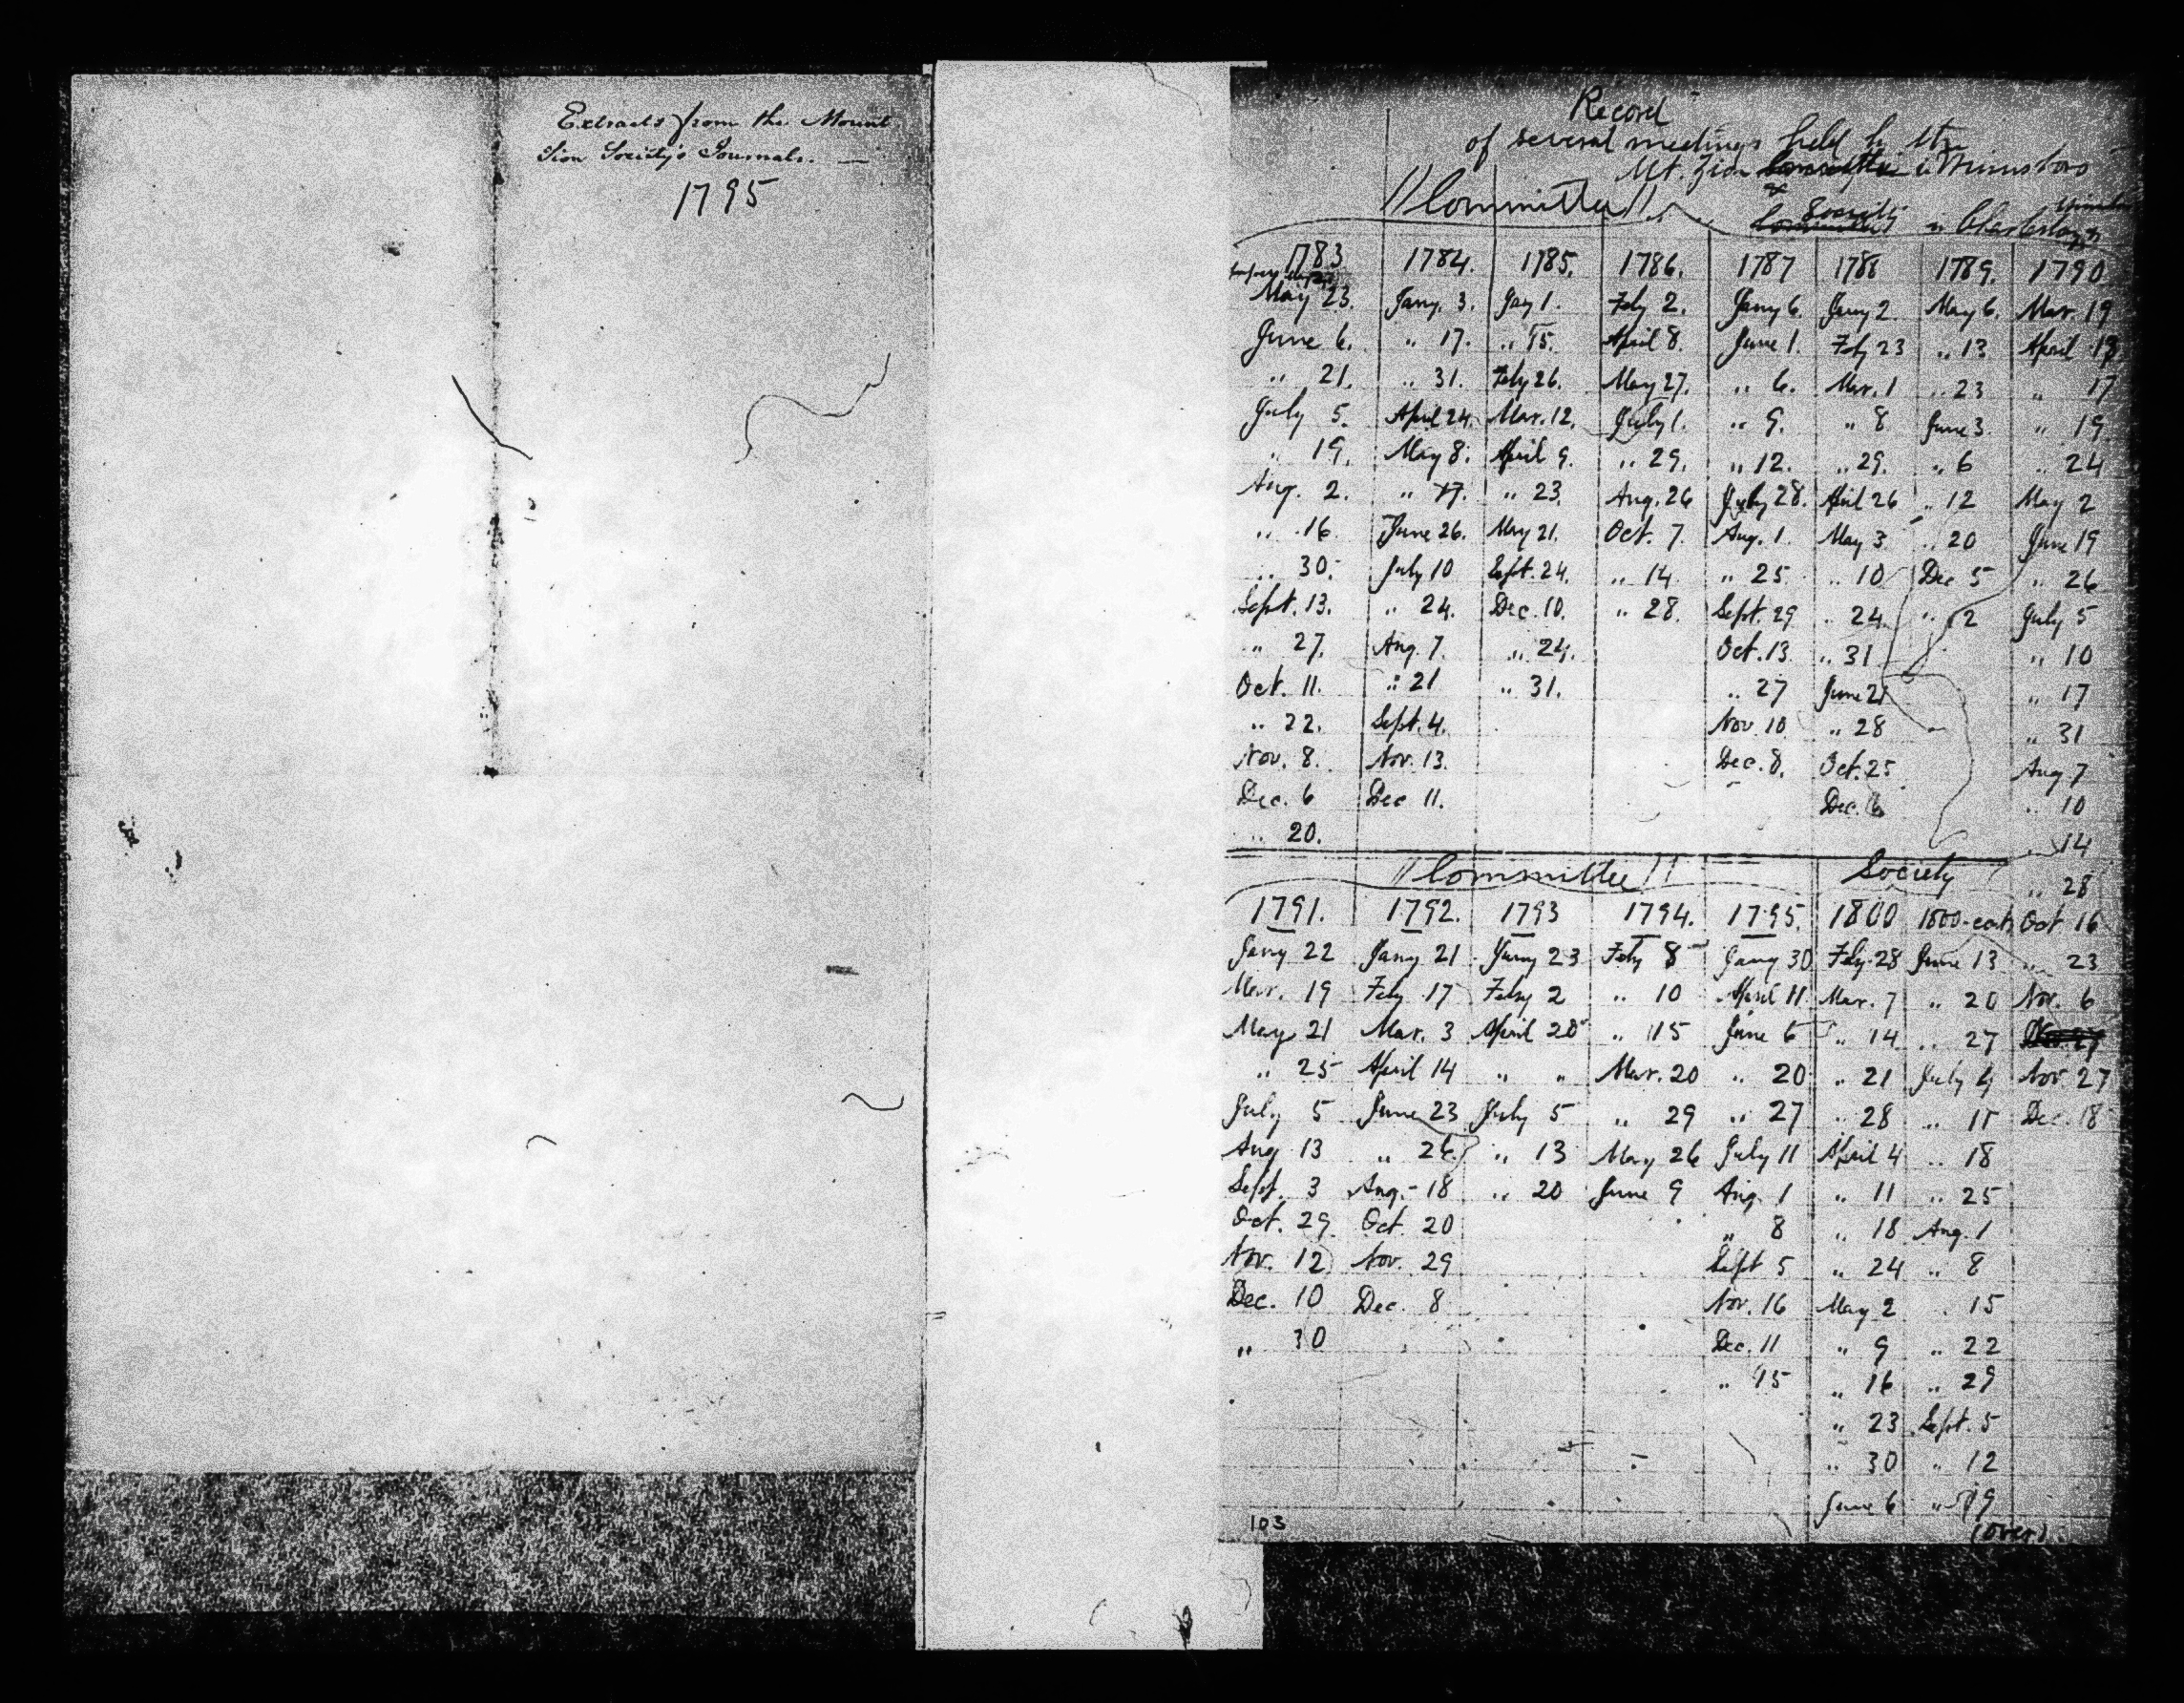 Extracts from the Mount
Sion Society's Journals. —
1795
Record
of several meetings held by the
Mt. Zion Committee in Winnsboro
&
"Committee" Society in Charleston
1783 1784. 1785. 1786. 1787 1788 1789. 1790.
May 23. Jany. 3. Jay 1. Feby 2. Jany 6. Jany 2. May 6. Mar. 19
June 6. " 17. " 15. April 8. June 1. Feby 23 " 13 April 13
" 21. " 31. Feby 26. May 27. " 6. Mar. 1 " 23 " 17
July 5. April 24. Mar. 12. July 1. " 9. " 8 June 3 " 19
" 19. May 8. April 9. " 29. " 12. " 29. " 6 " 24
Aug. 2. " 17. " 23. Aug. 26 July 28. April 26 " 12 May 2
" 16. June 26. May 21. Oct. 7. Aug. 1. May 3 " 20 June 19
" 30. July 10 Sept. 24. " 14 " 25 " 10 Dec 5 " 26
Sept. 13. " 24. Dec. 10. " 28. Sept. 29 " 24. " 12 July 5
" 27. Aug. 7. " 24. Oct. 13. " 31 " 10
Oct. 11. " 21 " 31. " 27 June 21 " 17
" 22. Sept. 4. Nov. 10 " 28 " 31
Nov. 8. Nov. 13. Dec. 8. Oct. 25 Aug 7
Dec. 6 Dec 11. Dec. 6 " 10
" 20. " 14
"Committee" Society " 28
1791. 1792. 1793 1794. 1795. 1800 1800-cont. Oct 16
Jany 22 Jany 21 Jany 23 Feby 8 Jany 30 Feby 28 June 13 " 23
Mar. 19 Feby 17 Feby 2 " 10 April 11 Mar. 7 " 20 Nov. 6
May 21 Mar. 3 April 20 " 15 June 6 " 14 " 27
" 25 April 14 " " Mar. 20 " 20 " 21 July 4 Nov 27
July 5 June 23 July 5 " 29 " 27 " 28 " 11 Dec. 18
Aug 13 " 26 " 13 May 26 July 11 April 4 " 18
Sept. 3 Aug. 18 " 20 June 9 Aug. 1 " 11 " 25
Oct. 29. Oct. 20 " 8 " 18 Aug. 1
Nov. 12 Nov. 29 Sept 5 " 24 " 8
Dec. 10 Dec. 8 Nov. 16 May 2 " 15
" 30 Dec. 11 " 9 " 22
" 15 " 16 " 29
" 23 Sept. 5
" 30 " 12
June 6 " 19
103 (over)